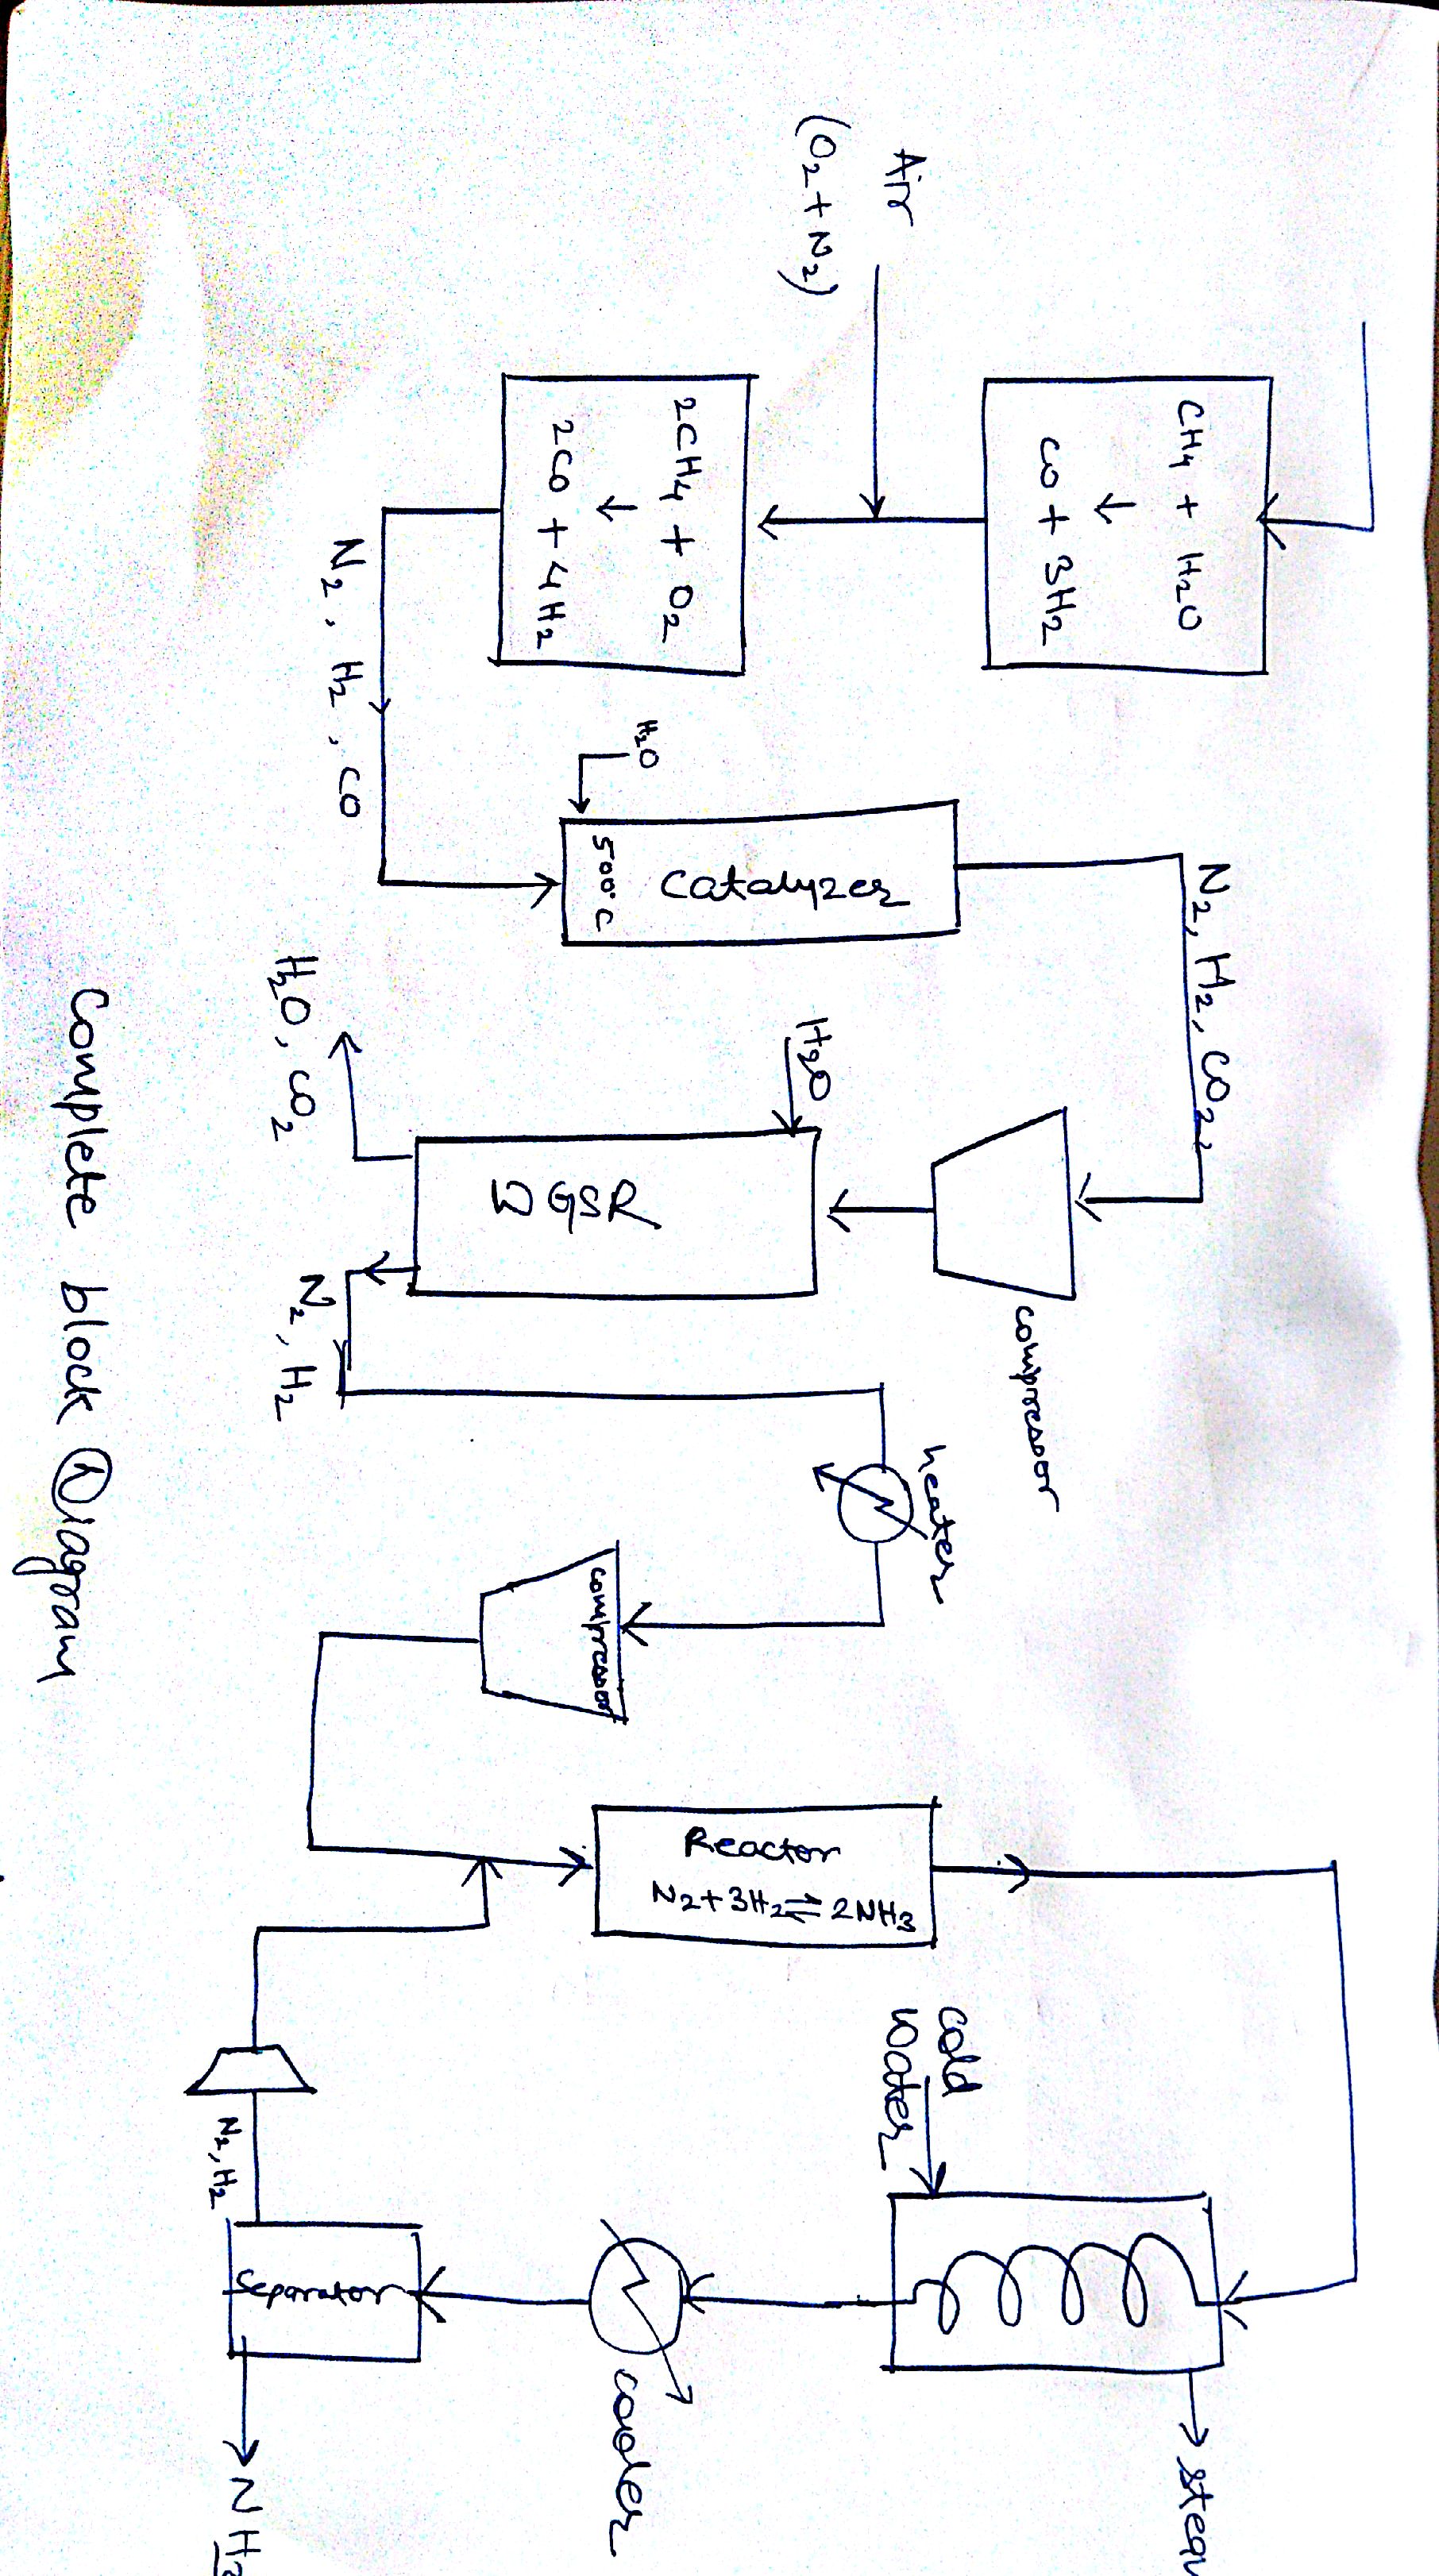 CH4 + H2O
↓
CO + 3H2
Air
(O2 + N2)
2CH4 + O2
↓
2CO + 4H2
N2, H2, CO
H2O
500°C
Catalyzer
N2, H2, CO2,
compressor
H2O
WGSR
H2O, CO2
N2, H2
heater
compressor
Reactor
N2+3H2⇌2NH3
cold
water
cooler
Separator
N2, H2
NH3
Complete block Diagram